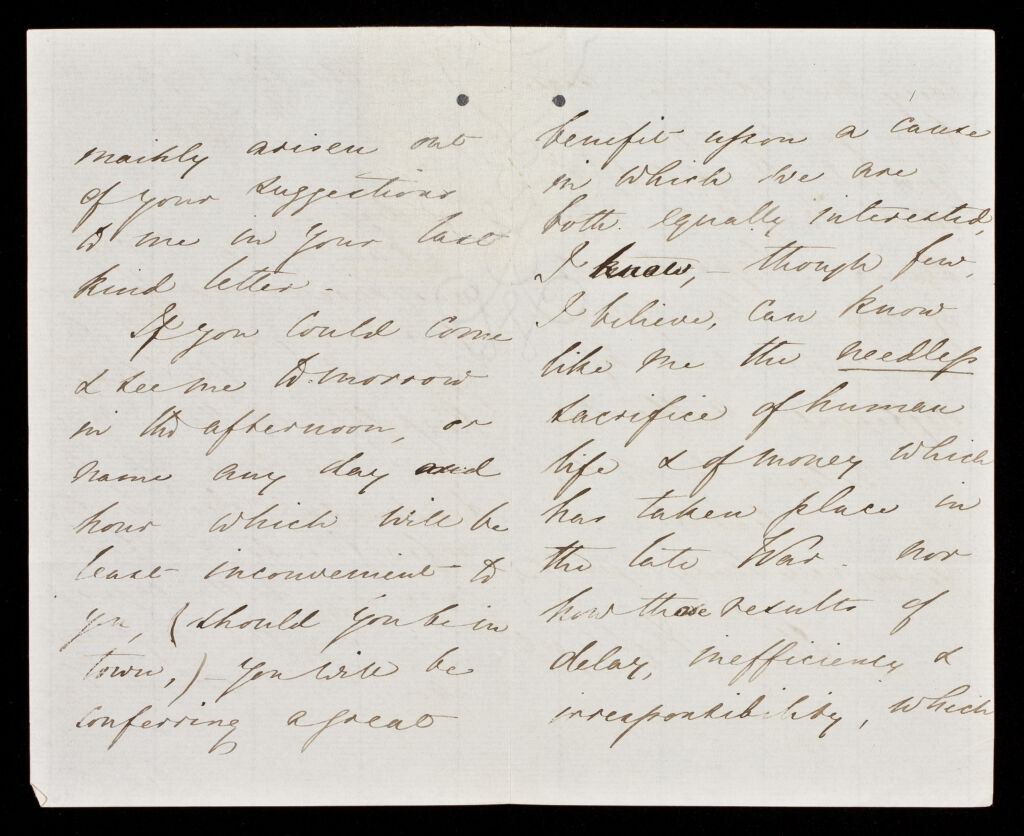 mainly arisen out
of your suggestions
to me in your last
kind letter -
If you could come
& see me to-morrow
in the afternoon, or
name any day and
hour which will be
least inconvenient to
you, (should you be in
town,) - you will be
conferring a great
benefit upon a cause
in which we are
both equally interested,
I know, - though few,
I believe, can know
like me the needless
sacrifice of human
life & of money which
has taken place in
the late War - nor
how those results of
delay, inefficiency &
irresponsibility, which